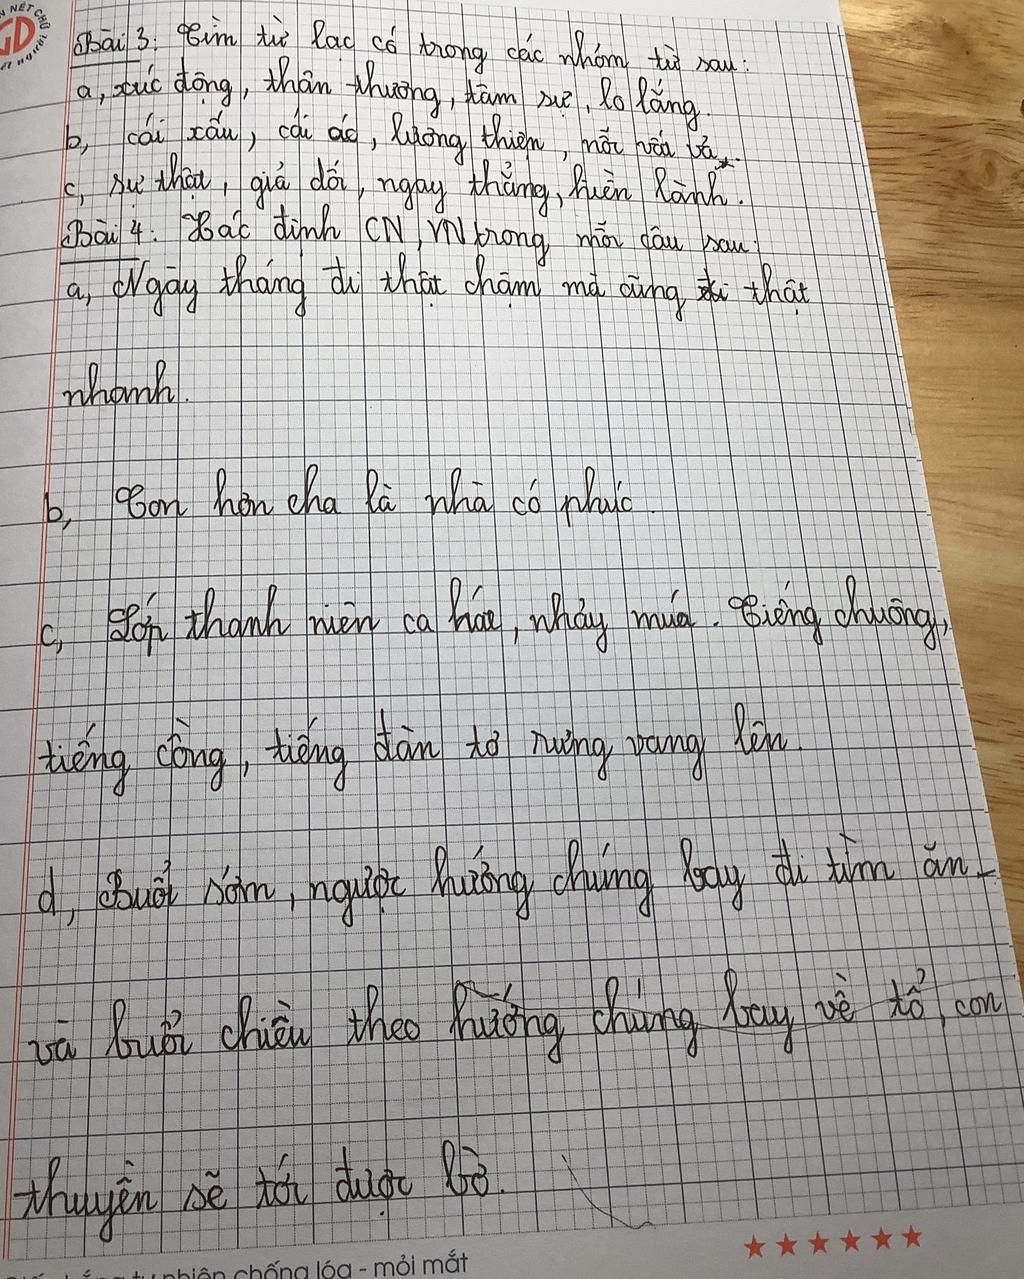 N NÉT CHỮ
GD
Bài 3: Tìm từ lạc có trong các nhóm từ sau:
a, xúc động, thân thương, tâm sự, lo lắng.
b, cái xấu, cái ác, lương thiện, nỗi vất vả.
c, sự thật, giả dối, ngay thẳng, hiền lành.
Bài 4: Xác định CN, VN trong mỗi câu sau:
a, Ngày tháng đi thật chậm mà cũng đi thật
nhanh.
b, Con hơn cha là nhà có phúc.
c, Tốp thanh niên ca hát, nhảy múa. Tiếng chuông,
tiếng cồng, tiếng đàn tơ rưng vang lên.
d, Buổi sớm, ngược hướng chúng bay đi tìm ăn
và buổi chiều theo hướng chúng bay về tổ, con
thuyền sẽ tới được bờ.
nhiên chống lóa - mỏi mắt